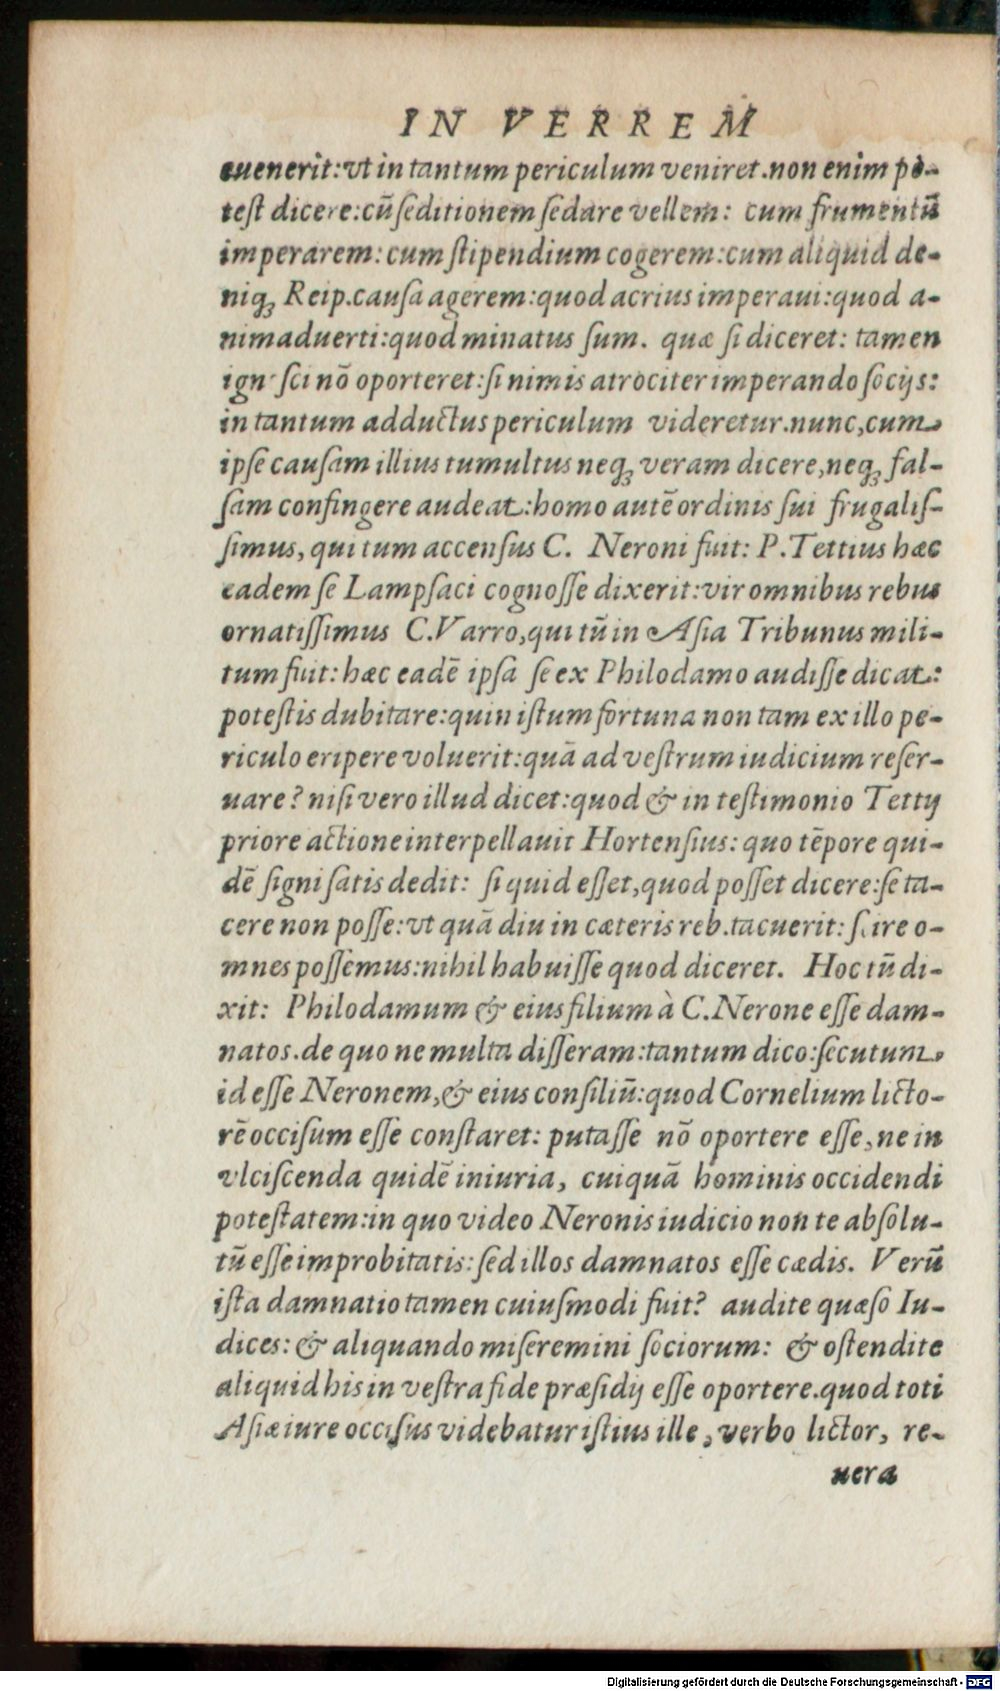 IN VERREM
euenerit:vt in tantum periculum veniret.non enim po-
test dicere:cũ seditionem sedare vellem: cum frumentũ
imperarem: cum stipendium cogerem:cum aliquid de-
niq; Reip.causa agerem:quod acrius imperaui:quod a-
nimaduerti:quod minatus sum. quæ si diceret: tamen
ign sci nõ oporteret:si nimis atrociter imperando socijs:
in tantum adductus periculum videretur.nunc,cum
ipse causam illius tumultus neq; veram dicere,neq; fal-
sam confingere audeat:homo autẽ ordinis sui frugalis-
simus, qui tum accensus C. Neroni fuit: P.Tettius hæc
eadem se Lampsaci cognosse dixerit:vir omnibus rebus
ornatissimus C.Varro,qui tũ in Asia Tribunus mili-
tum fuit: hæc eadẽ ipsa se ex Philodamo audisse dicat:
potestis dubitare:quin istum fortuna non tam ex illo pe-
riculo eripere voluerit:quã ad vestrum iudicium reser-
uare? nisi vero illud dicet:quod & in testimonio Tettij
priore actione interpellauit Hortensius: quo tẽpore qui-
dẽ signi satis dedit: si quid esset,quod posset dicere:se ta-
cere non posse:vt quã diu in cæteris reb.tacuerit: scire o-
mnes possemus:nihil habuisse quod diceret. Hoc tũ di-
xit: Philodamum & eius filium à C.Nerone esse dam-
natos.de quo ne multa disseram:tantum dico:secutum
id esse Neronem,& eius consiliũ:quod Cornelium licto-
rẽ occisum esse constaret: putasse nõ oportere esse, ne in
vlciscenda quidẽ iniuria, cuiquã hominis occidendi
potestatem:in quo video Neronis iudicio non te absolu-
tũ esse improbitatis: sed illos damnatos esse cædis. Verũ
ista damnatio tamen cuiusmodi fuit? audite quæso Iu-
dices: & aliquando miseremini sociorum: & ostendite
aliquid his in vestra fide præsidij esse oportere.quod toti
Asiæ iure occisus videbatur istius ille, verbo lictor, re-
uera
Digitalisierung gefördert durch die Deutsche Forschungsgemeinschaft - DFG